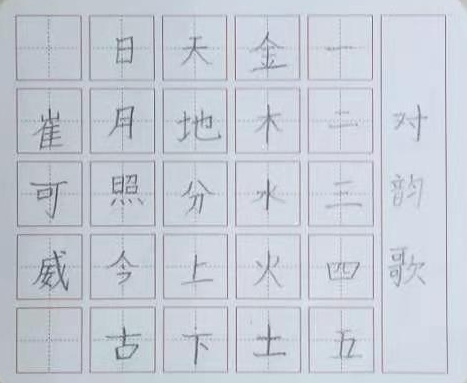 对韵歌
一二三四五
金木水火土
天地分上下
日月照今古
崔可威